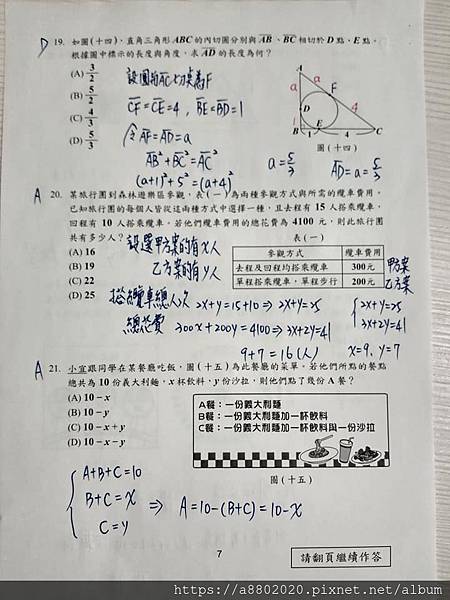 D 19. 如圖(十四)，直角三角形ABC的內切圓分別與AB、BC相切於D點、E點。
根據圖中標示的長度與角度，求AD的長度為何？
(A) 3/2
(B) 5/2
(C) 4/3
(D) 5/3
設圓與AC切点為F
CF=CE=4, BE=BD=1
令AF=AD=a
AB²+BC²=AC²
(a+1)²+5²=(a+4)²
a=5/3
AD=a=5/3
A
a
a
F
D
4
1
B 1 E 4 C
圖(十四)
A 20. 某旅行團到森林遊樂區參觀，表(一)為兩種參觀方式與所需的纜車費用。
已知旅行團的每個人皆從這兩種方式中選擇一種，且去程有15人搭乘纜車，
回程有10人搭乘纜車。若他們纜車費用的總花費為4100元，則此旅行團
共有多少人？
(A) 16
(B) 19
(C) 22
(D) 25
表(一)
參觀方式 纜車費用
去程及回程均搭乘纜車 300元
單程搭乘纜車，單程步行 200元
甲方案
乙方案
設選甲方案的有x人
乙方案的有y人
搭乘纜車總人次 2x+y=15+10⇒2x+y=25
總花費 300x+200y=4100⇒3x+2y=41
2x+y=25
3x+2y=41
x=9, y=7
9+7=16(人)
A 21. 小宣跟同學在某餐廳吃飯，圖(十五)為此餐廳的菜單。若他們所點的餐點
總共為10份義大利麵，x杯飲料，y份沙拉，則他們點了幾份A餐？
(A) 10-x
(B) 10-y
(C) 10-x+y
(D) 10-x-y
A餐：一份義大利麵
B餐：一份義大利麵加一杯飲料
C餐：一份義大利麵加一杯飲料與一份沙拉
圖(十五)
A+B+C=10
B+C=x
C=y
⇒ A=10-(B+C)=10-x
7
請翻頁繼續作答
https://a8802020.pixnet.net/album